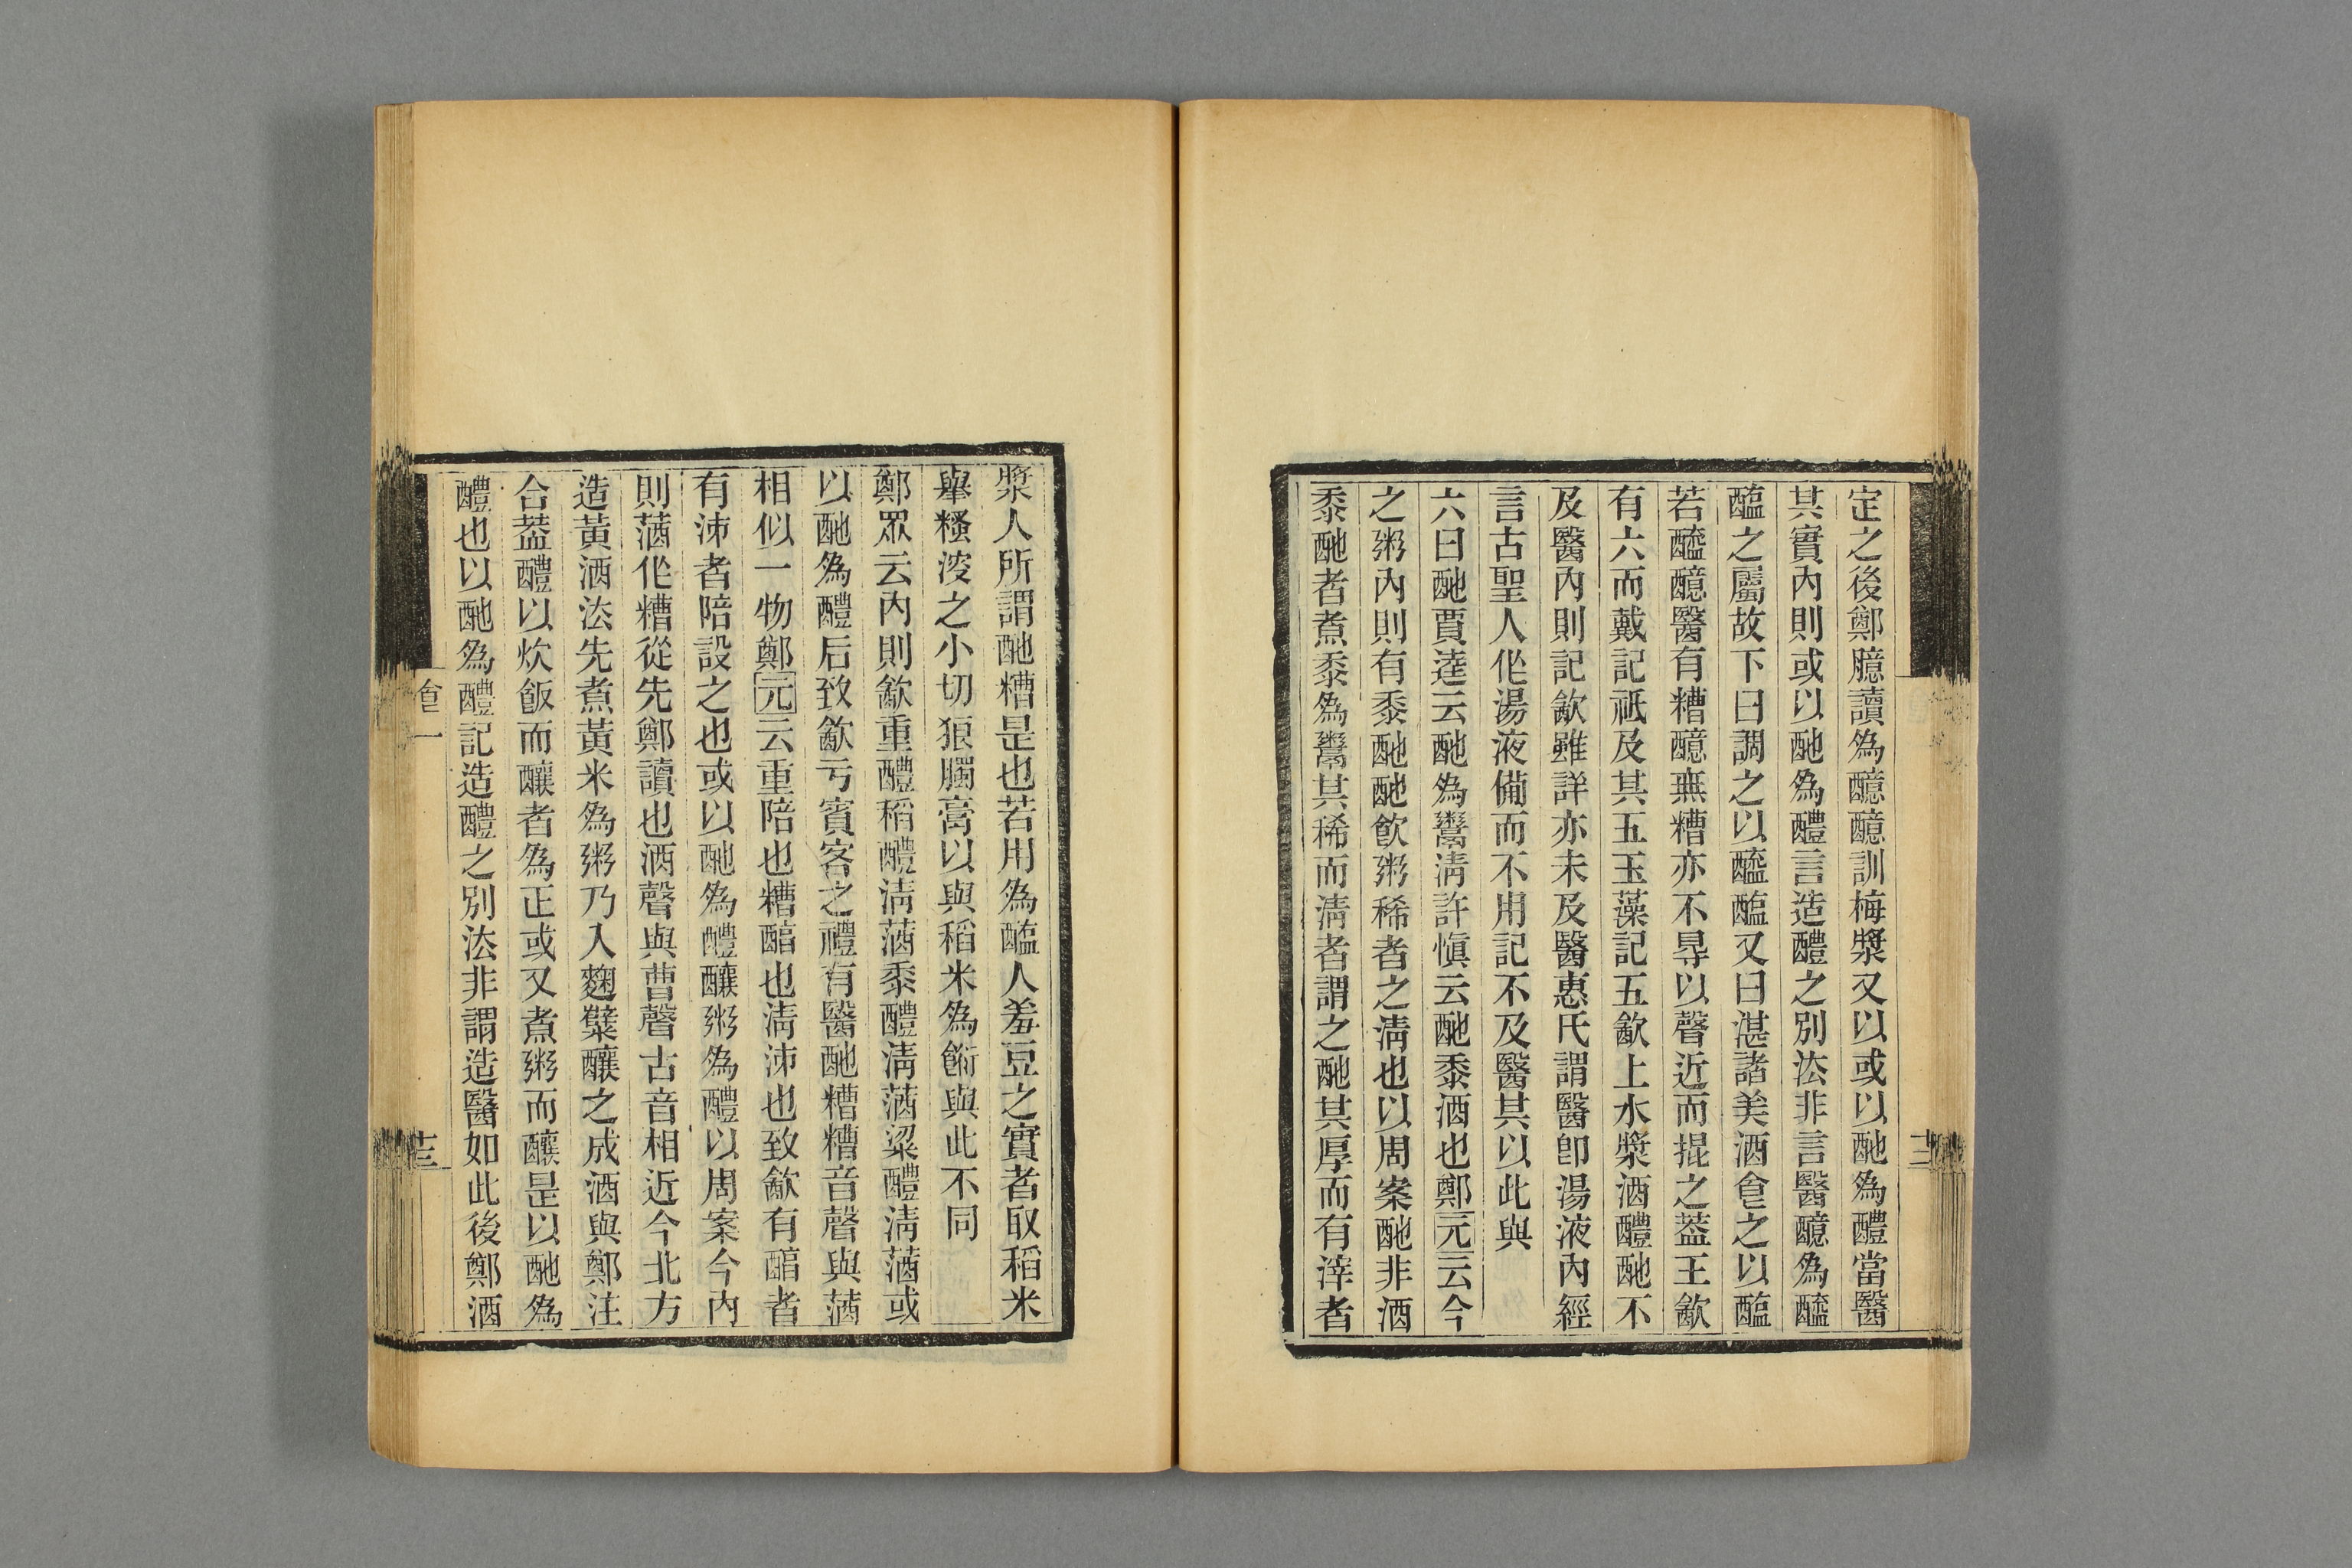 定之後鄭臆讀為醷醷訓梅漿又以或以酏為醴當醫
其實內則或以酏為醴言造醴之別法非言醫醷為醯
醢之屬故下曰調之以醯醢又曰湛諸美酒食之以醢
若醯醷醫有糟醷無糟亦不㝵以聲近而掍之葢王㱃
有六而戴記祗及其五玉藻記五㱃上水漿酒醴酏不
及醫內則記㱃雖詳亦未及醫惠氏謂醫卽湯液內經
言古聖人作湯液備而不用記不及醫其以此與
六曰酏賈逵云酏為鬻清許愼云酏黍酒也鄭元云今
之粥內則有黍酏酏飲粥稀者之清也以周案酏非酒
黍酏者煮黍為鬻其稀而清者謂之酏其厚而有滓者
漿人所謂酏糟是也若用為醢人羞豆之實者取稻米
舉糔溲之小切狼臅膏以與稻米為餰與此不同
鄭眾云內則㱃重醴稻醴清䤖黍醴清䤖粱醴清䤖或
以酏為醴后致㱃亏賓客之禮有醫酏糟糟音聲與䤖
相似一物鄭元云重陪也糟醅也清泲也致㱃有醅者
有泲者陪設之也或以酏為醴釀粥為醴以周案今內
則䤖作糟從先鄭讀也酒聲與曹聲古音相近今北方
造黃酒法先煮黃米為粥乃入麴櫱釀之成酒與鄭注
合葢醴以炊飯而釀者為正或又煮粥而釀是以酏為
醴也以酏為醴記造醴之別法非謂造醫如此後鄭酒
食一
十三